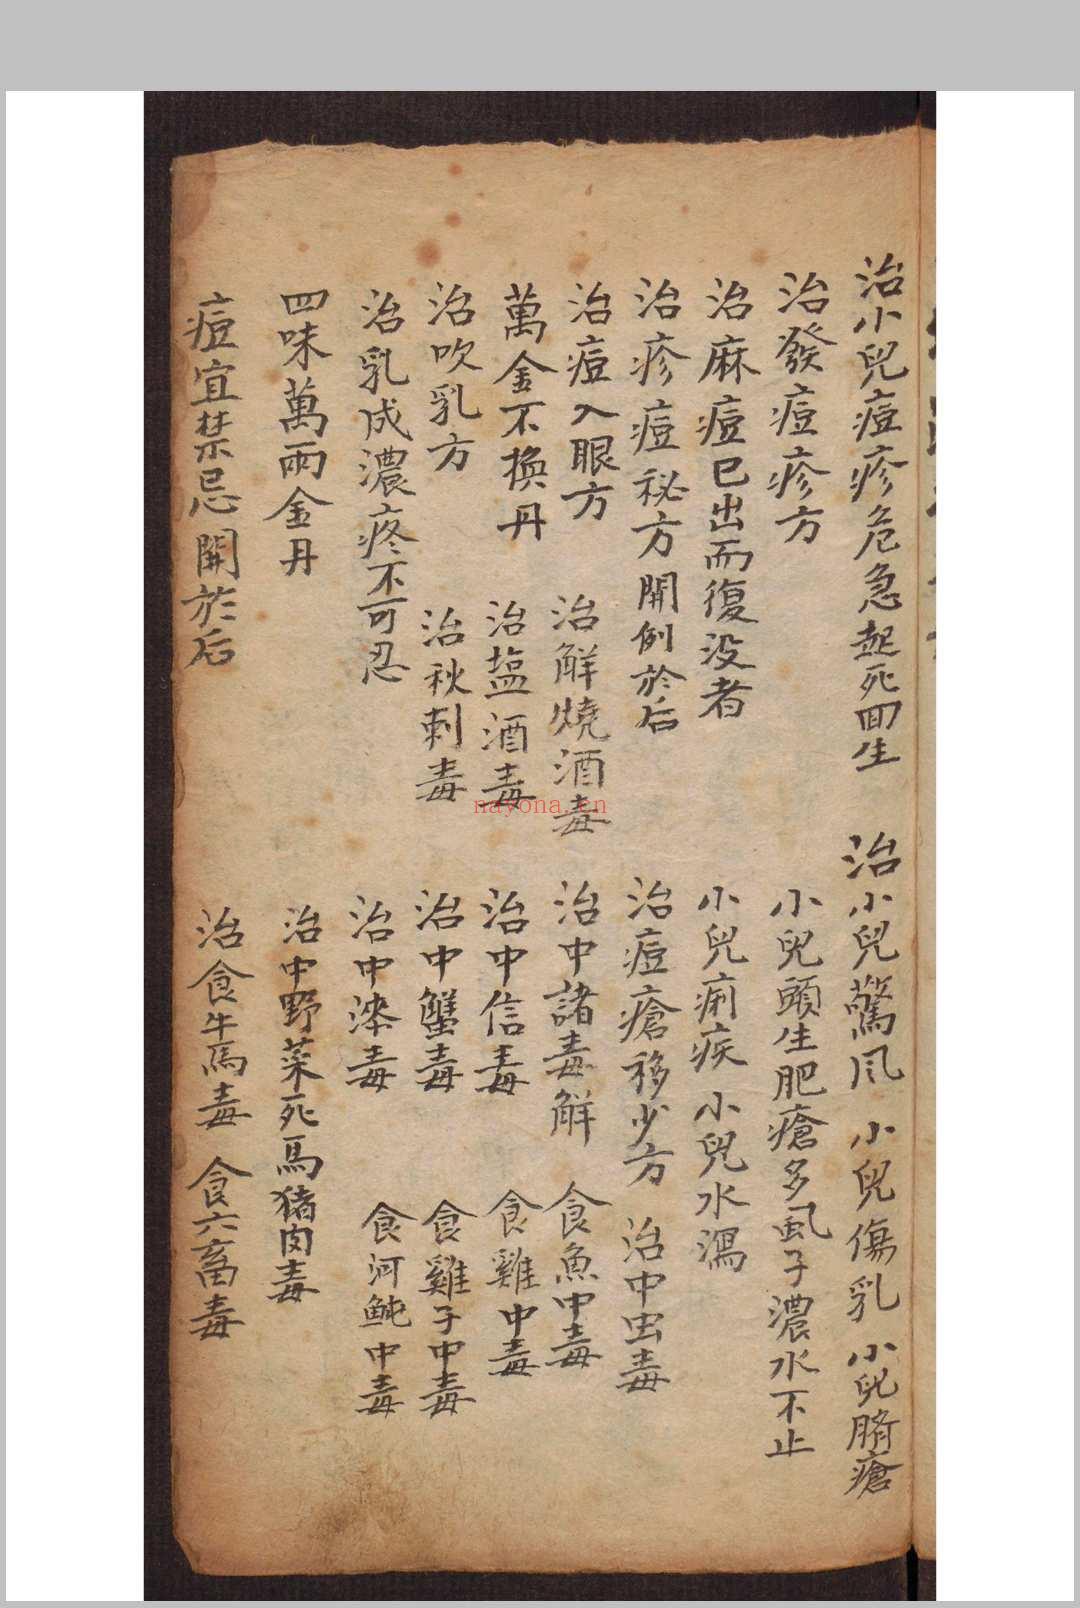 治小兒痘疹危急起死回生 治小兒驚风 小兒傷乳 小兒臍瘡
治發痘疹方 小兒頭生肥瘡多虱子濃水不止
治麻痘已出而復没者 小兒痢疾 小兒水瀉
治疹痘祕方開例於后 治痘瘡移少方 治中虫毒
治痘入眼方 治解燒酒毒 治中諸毒解 食魚中毒
萬金不換丹 治塩酒毒 治中信毒 食雞中毒
治吹乳方 治秋刺毒 治中蟹毒 食雞子中毒
治乳成濃疼不可忍 治中漆毒 食河魨中毒
四味萬兩金丹 治中野菜死馬猪肉毒
痘宜禁忌開於后 治食牛馬毒 食六畜毒
nayona.cn